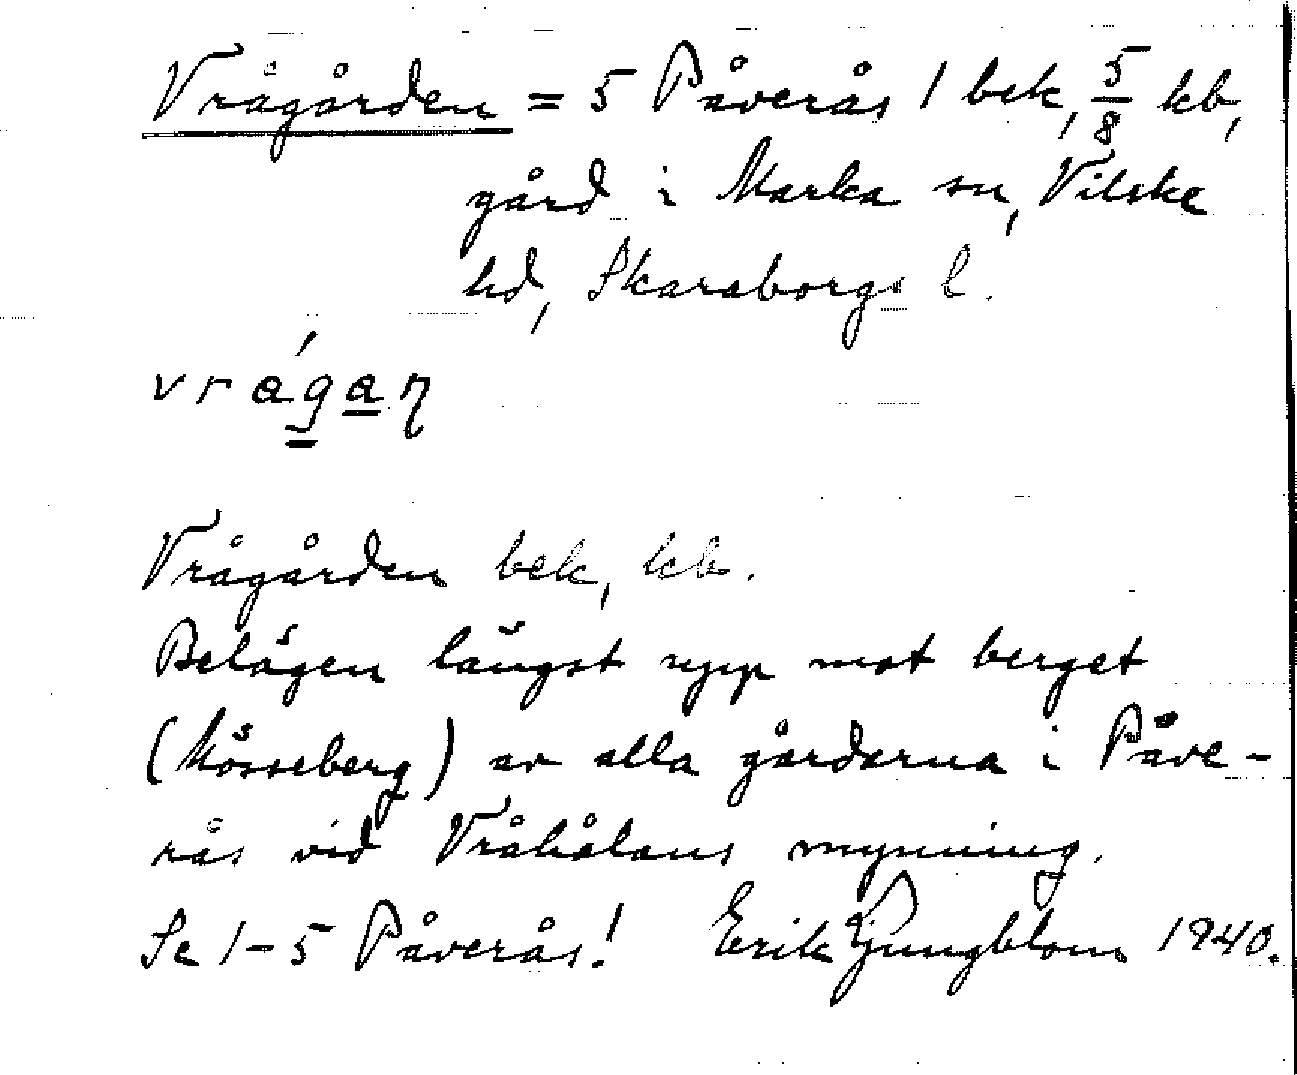 Vrågården = 5 Påverås 1 bek, 5/8 kb,
gård i Marka sn, Vilske
hd, Skaraborgs l.
vrágaη
Vrågården bek, kb.
Belägen längst upp mot berget
(Mösseberg) av alla gårdarna i Påve-
rås vid Vråhålans mynning.
Se 1-5 Påverås! Erik Ljungblom 1940.